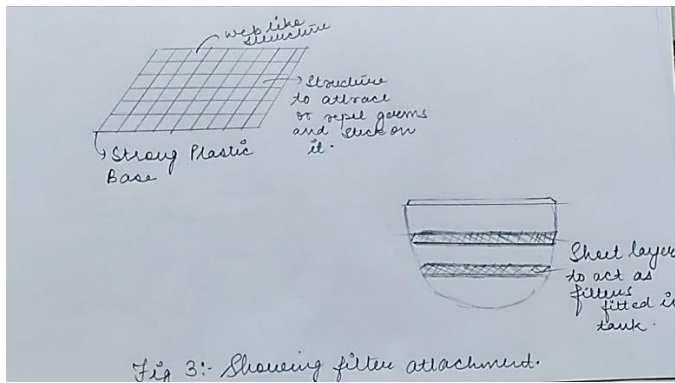 web like
structure
Structure
to attract
or repel germs
and stick on
it.
Strong Plastic
Base
Sheet layers
to act as
filters
fitted in
tank.
Fig 3:- Showing filter attachment.